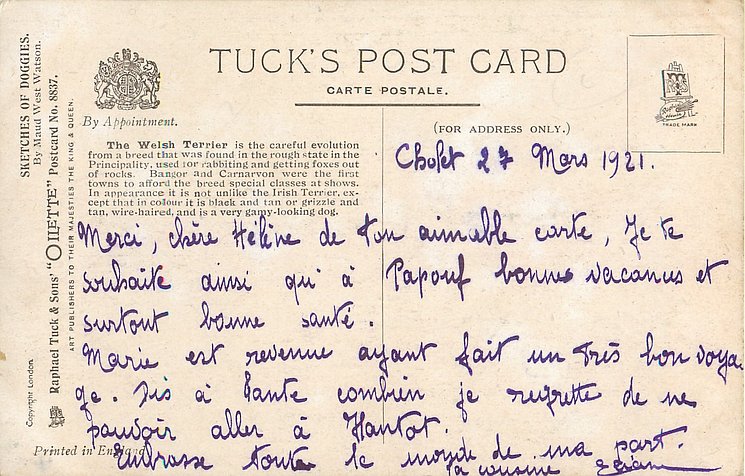 TUCK'S POST CARD
CARTE POSTALE.
By Appointment.
(FOR ADDRESS ONLY.)
TRADE MARK
SKETCHES OF DOGGIES.
By Maud West Watson.
Raphael Tuck & Sons' "OILETTE" Postcard No. 8837.
ART PUBLISHERS TO THEIR MAJESTIES THE KING & QUEEN.
Copyright London.
The Welsh Terrier is the careful evolution
from a breed that was found in the rough state in the
Principality, used for rabbiting and getting foxes out
of rocks. Bangor and Carnarvon were the first
towns to afford the breed special classes at shows.
In appearance it is not unlike the Irish Terrier, ex-
cept that in colour it is black and tan or grizzle and
tan, wire-haired, and is a very gamy-looking dog.
Cholet 27 Mars 1921.
Merci, chère Hélène de ton aimable carte, Je te
souhaite ainsi qu'à Papouf bonnes vacances et
surtout bonne santé.
Marie est revenue ayant fait un très bon voya-
ge. Dis à tante combien je regrette de ne
pouvoir aller à Hantot.
Embrasse tout le monde de ma part.
Ta cousine
Printed in England